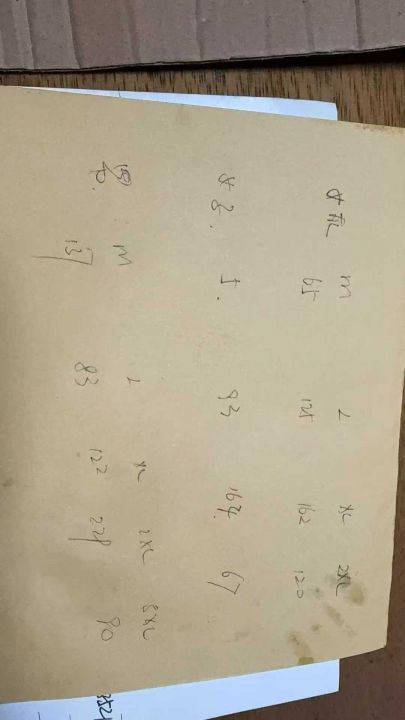 女 M L XL 2XL
65 125 162 120
女 5. 93 164. 67
M L XL 2XL 3XL
137 83 122 90